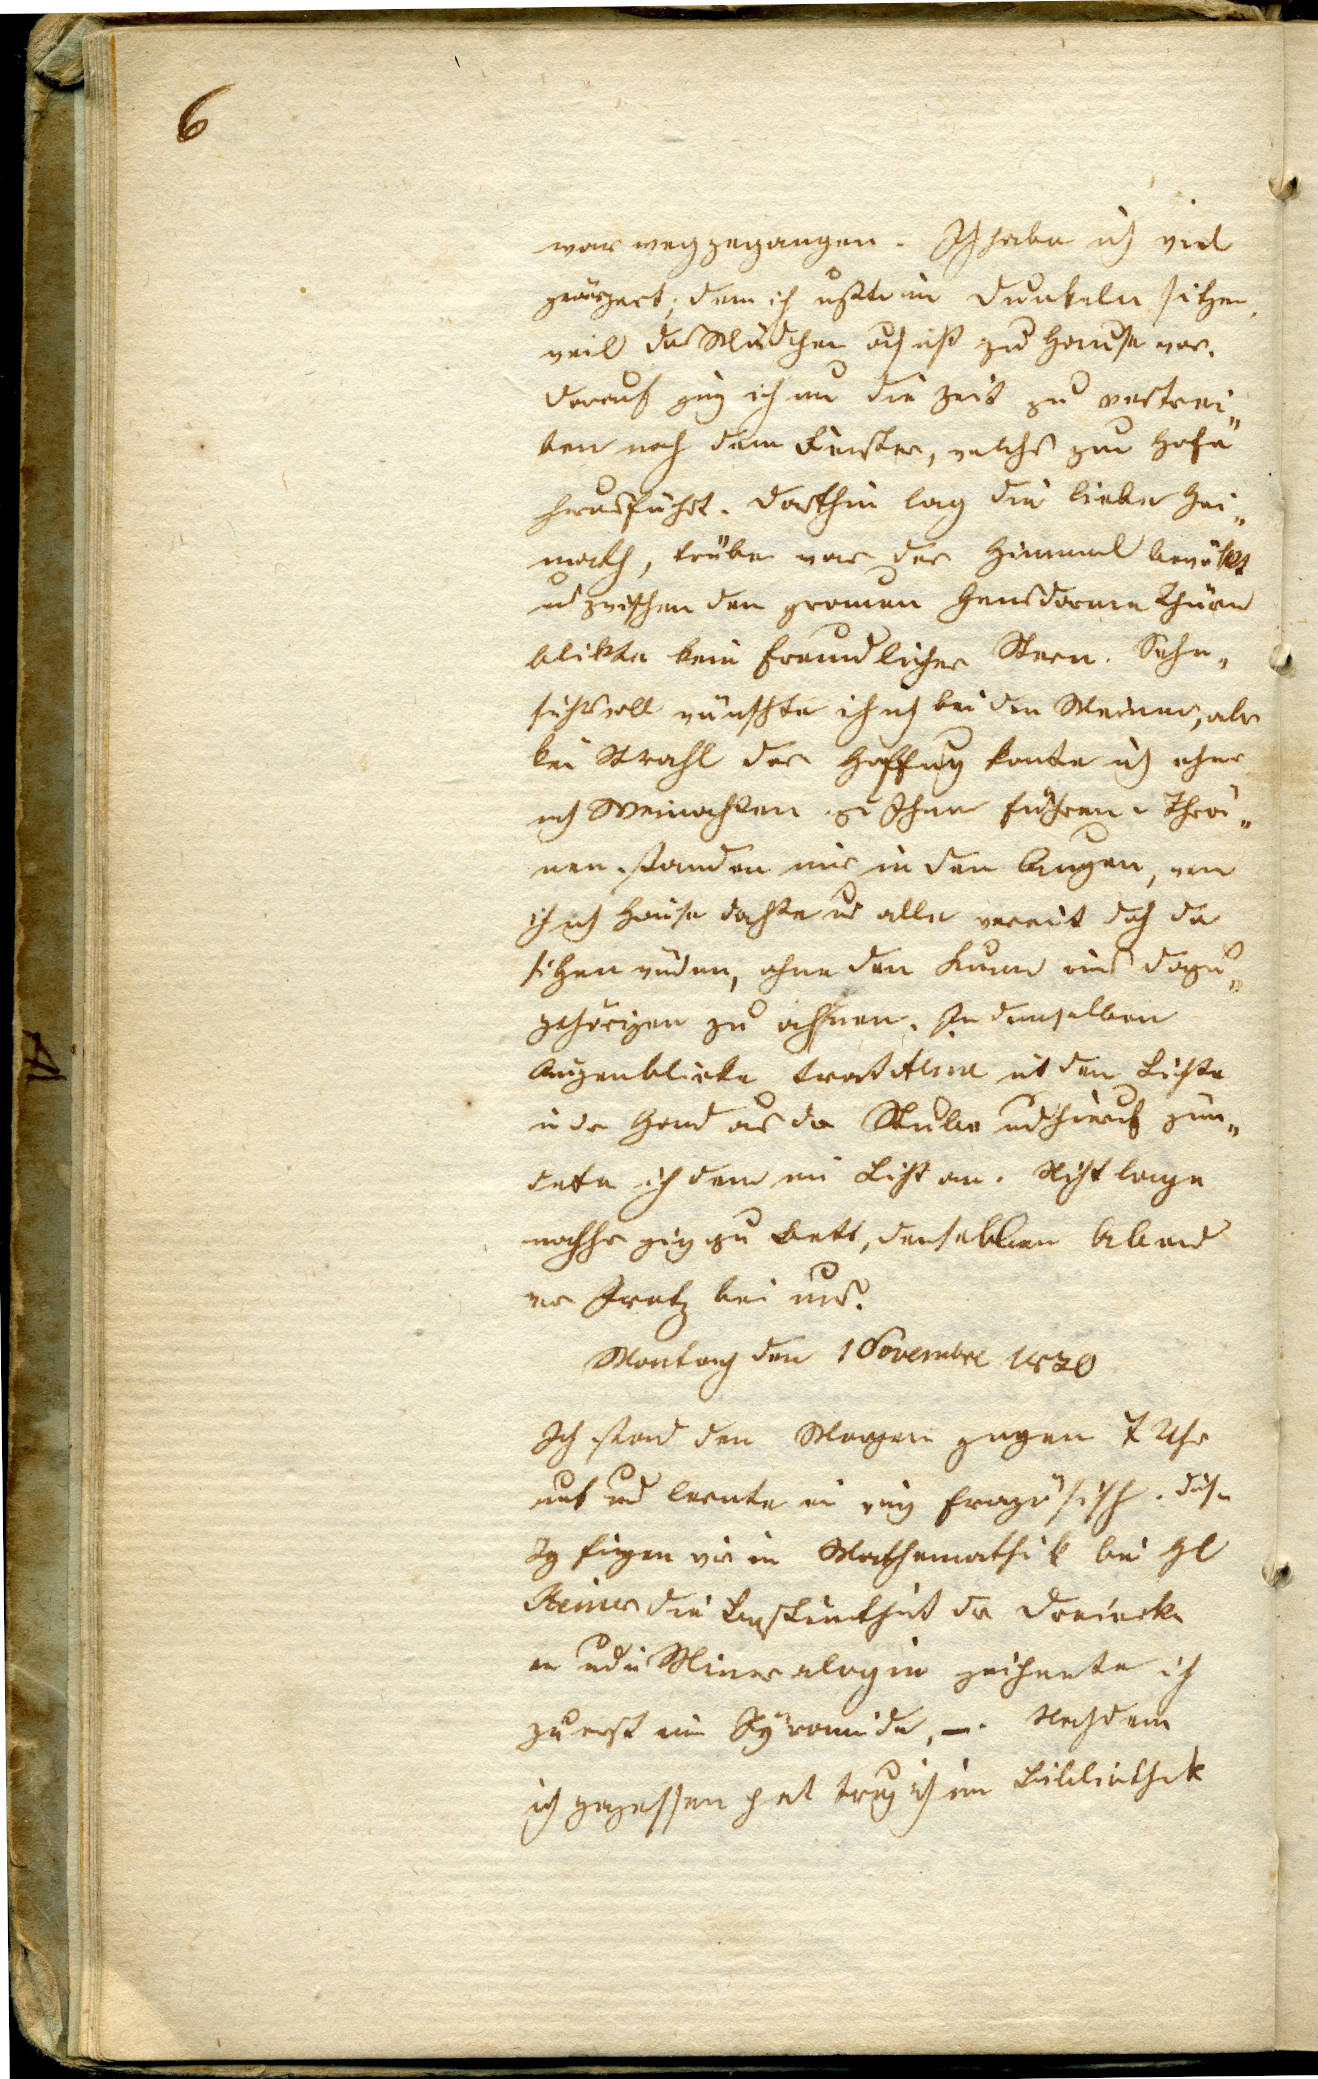 6
war weggegangen. Ich habe ich viel
geärgert, denn ich ußte im Dunkeln sitzen,
weil das Mädchen och nicht zu Hause war.
Darauf ging ich um die Zeit zu vertrei„
ben nach dem Fenster, welches zum Hofe
herausführt. Dorthin lag die liebe Hei„
math, trübe war der Himmel bewölkt
und zwischen den grauen Gensdarme Thürm
blikte kein freundlicher Stern. Sehn„
suchtsvoll wünschte ich ich bei den Meinen, aber
kein Strahl der Hoffnung konte ich eher
nach Weinachten zu Ihnen führen. Thrä„
nen standen mir in den Augen, wen
ich nach Hause dachte und alle vereint doch da
sitzen würden, ohne den Kum eines dazu„
gehörigen zu ahnen. In demselben
Augenblicke trat Aline mit dem Lichte
in der Hand aus der Stube und hierauf zün„
dete ich dann ein Licht an. Nicht lange
nachher ging zu Bett, denselben Abend
war Fratz bei uns.
Montag den 1 Novembre 1830
Ich stand den Morgen gegen 7 Uhr
auf und lernte ein wenig französisch. Diesen
Tg fingen wir in Mathemathik bei H
Steiner die der Dreiecke
an und in Mineralogie zeichnete ich
zuerst eine Pyramide, —. Nachdem
ich gegessen hat trug ich ein Bibliothek